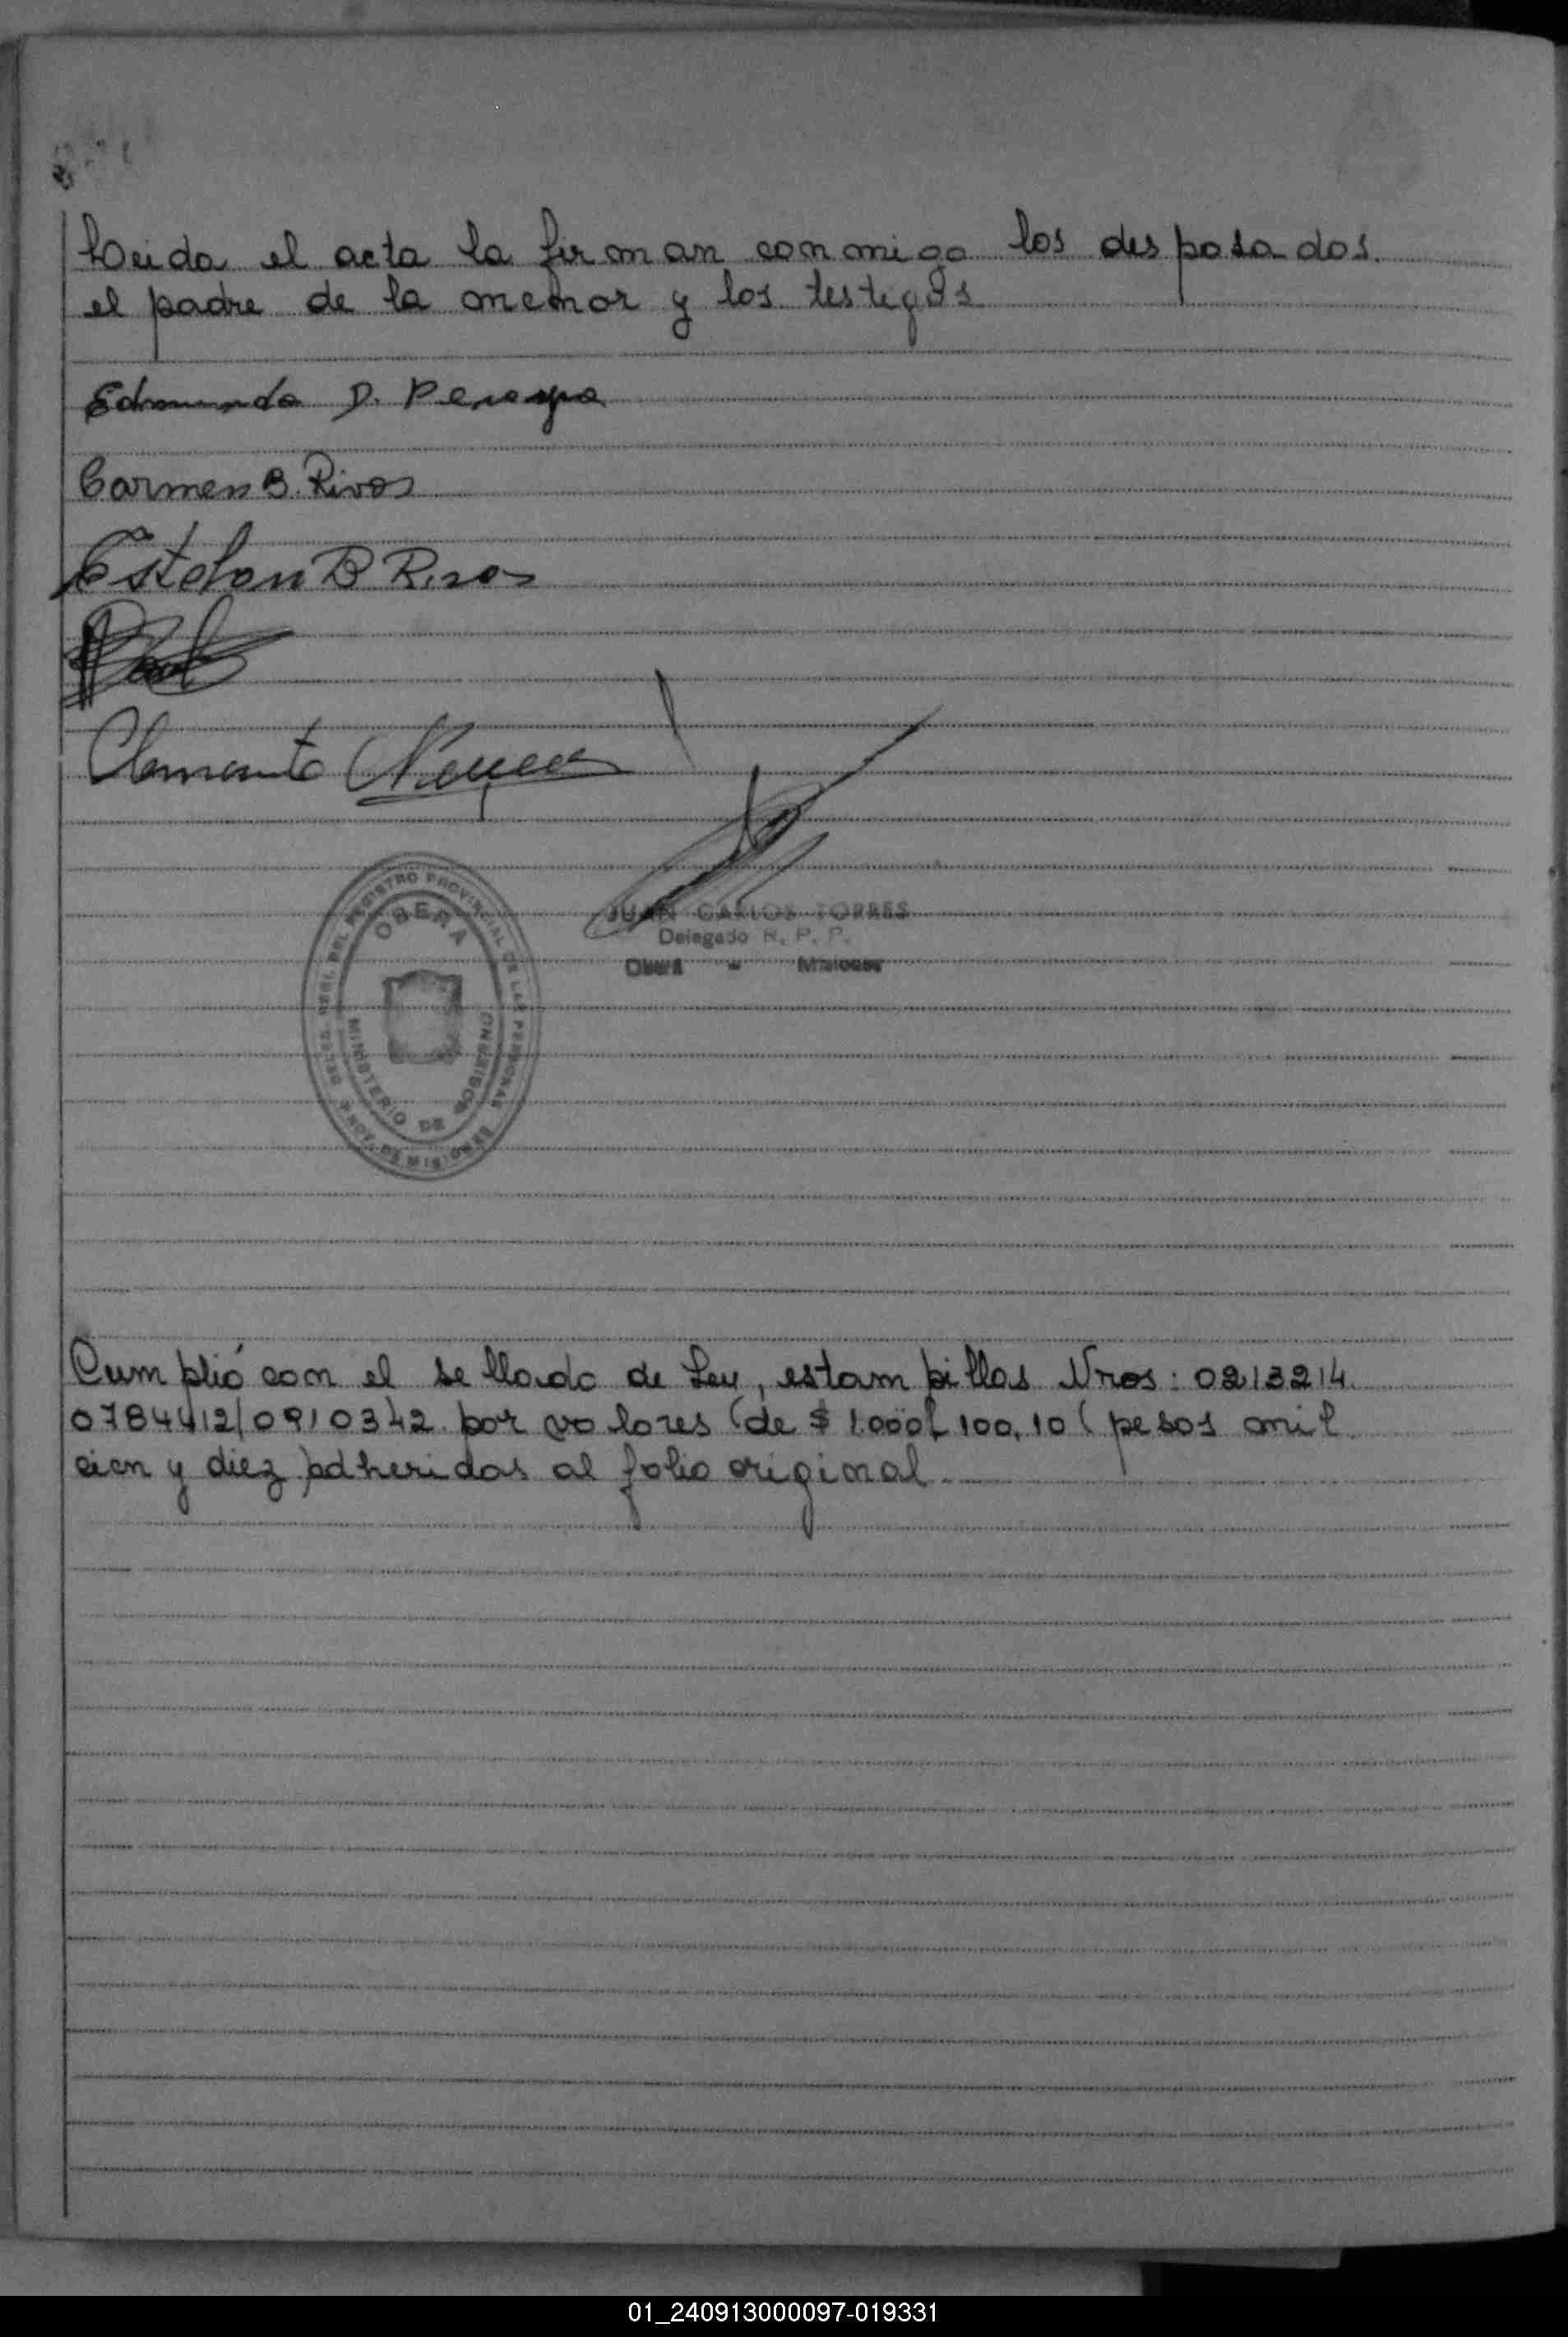 Leida el acta la firman conmigo los desposados.
el padre de la menor y los testigos
Edmundo D. Pereyra
Carmen B. Rivas
Esteban B Rivas
Clemente
JUAN CARLOS TORRES
Delegado R. P. P.
Oberá - Misiones
DEL REGISTRO PROVINCIAL DE LAS PERSONAS
OBERA
MINISTERIO DE GOBIERNO
DE MISIONES
Cumplió con el sellado de Ley, estampillas Nros: 0213214.
0784412/0910342. por valores (de $ 1.000, 100, 10 ( pesos mil
cien y diez) adheridas al folio original.
01_240913000097-019331